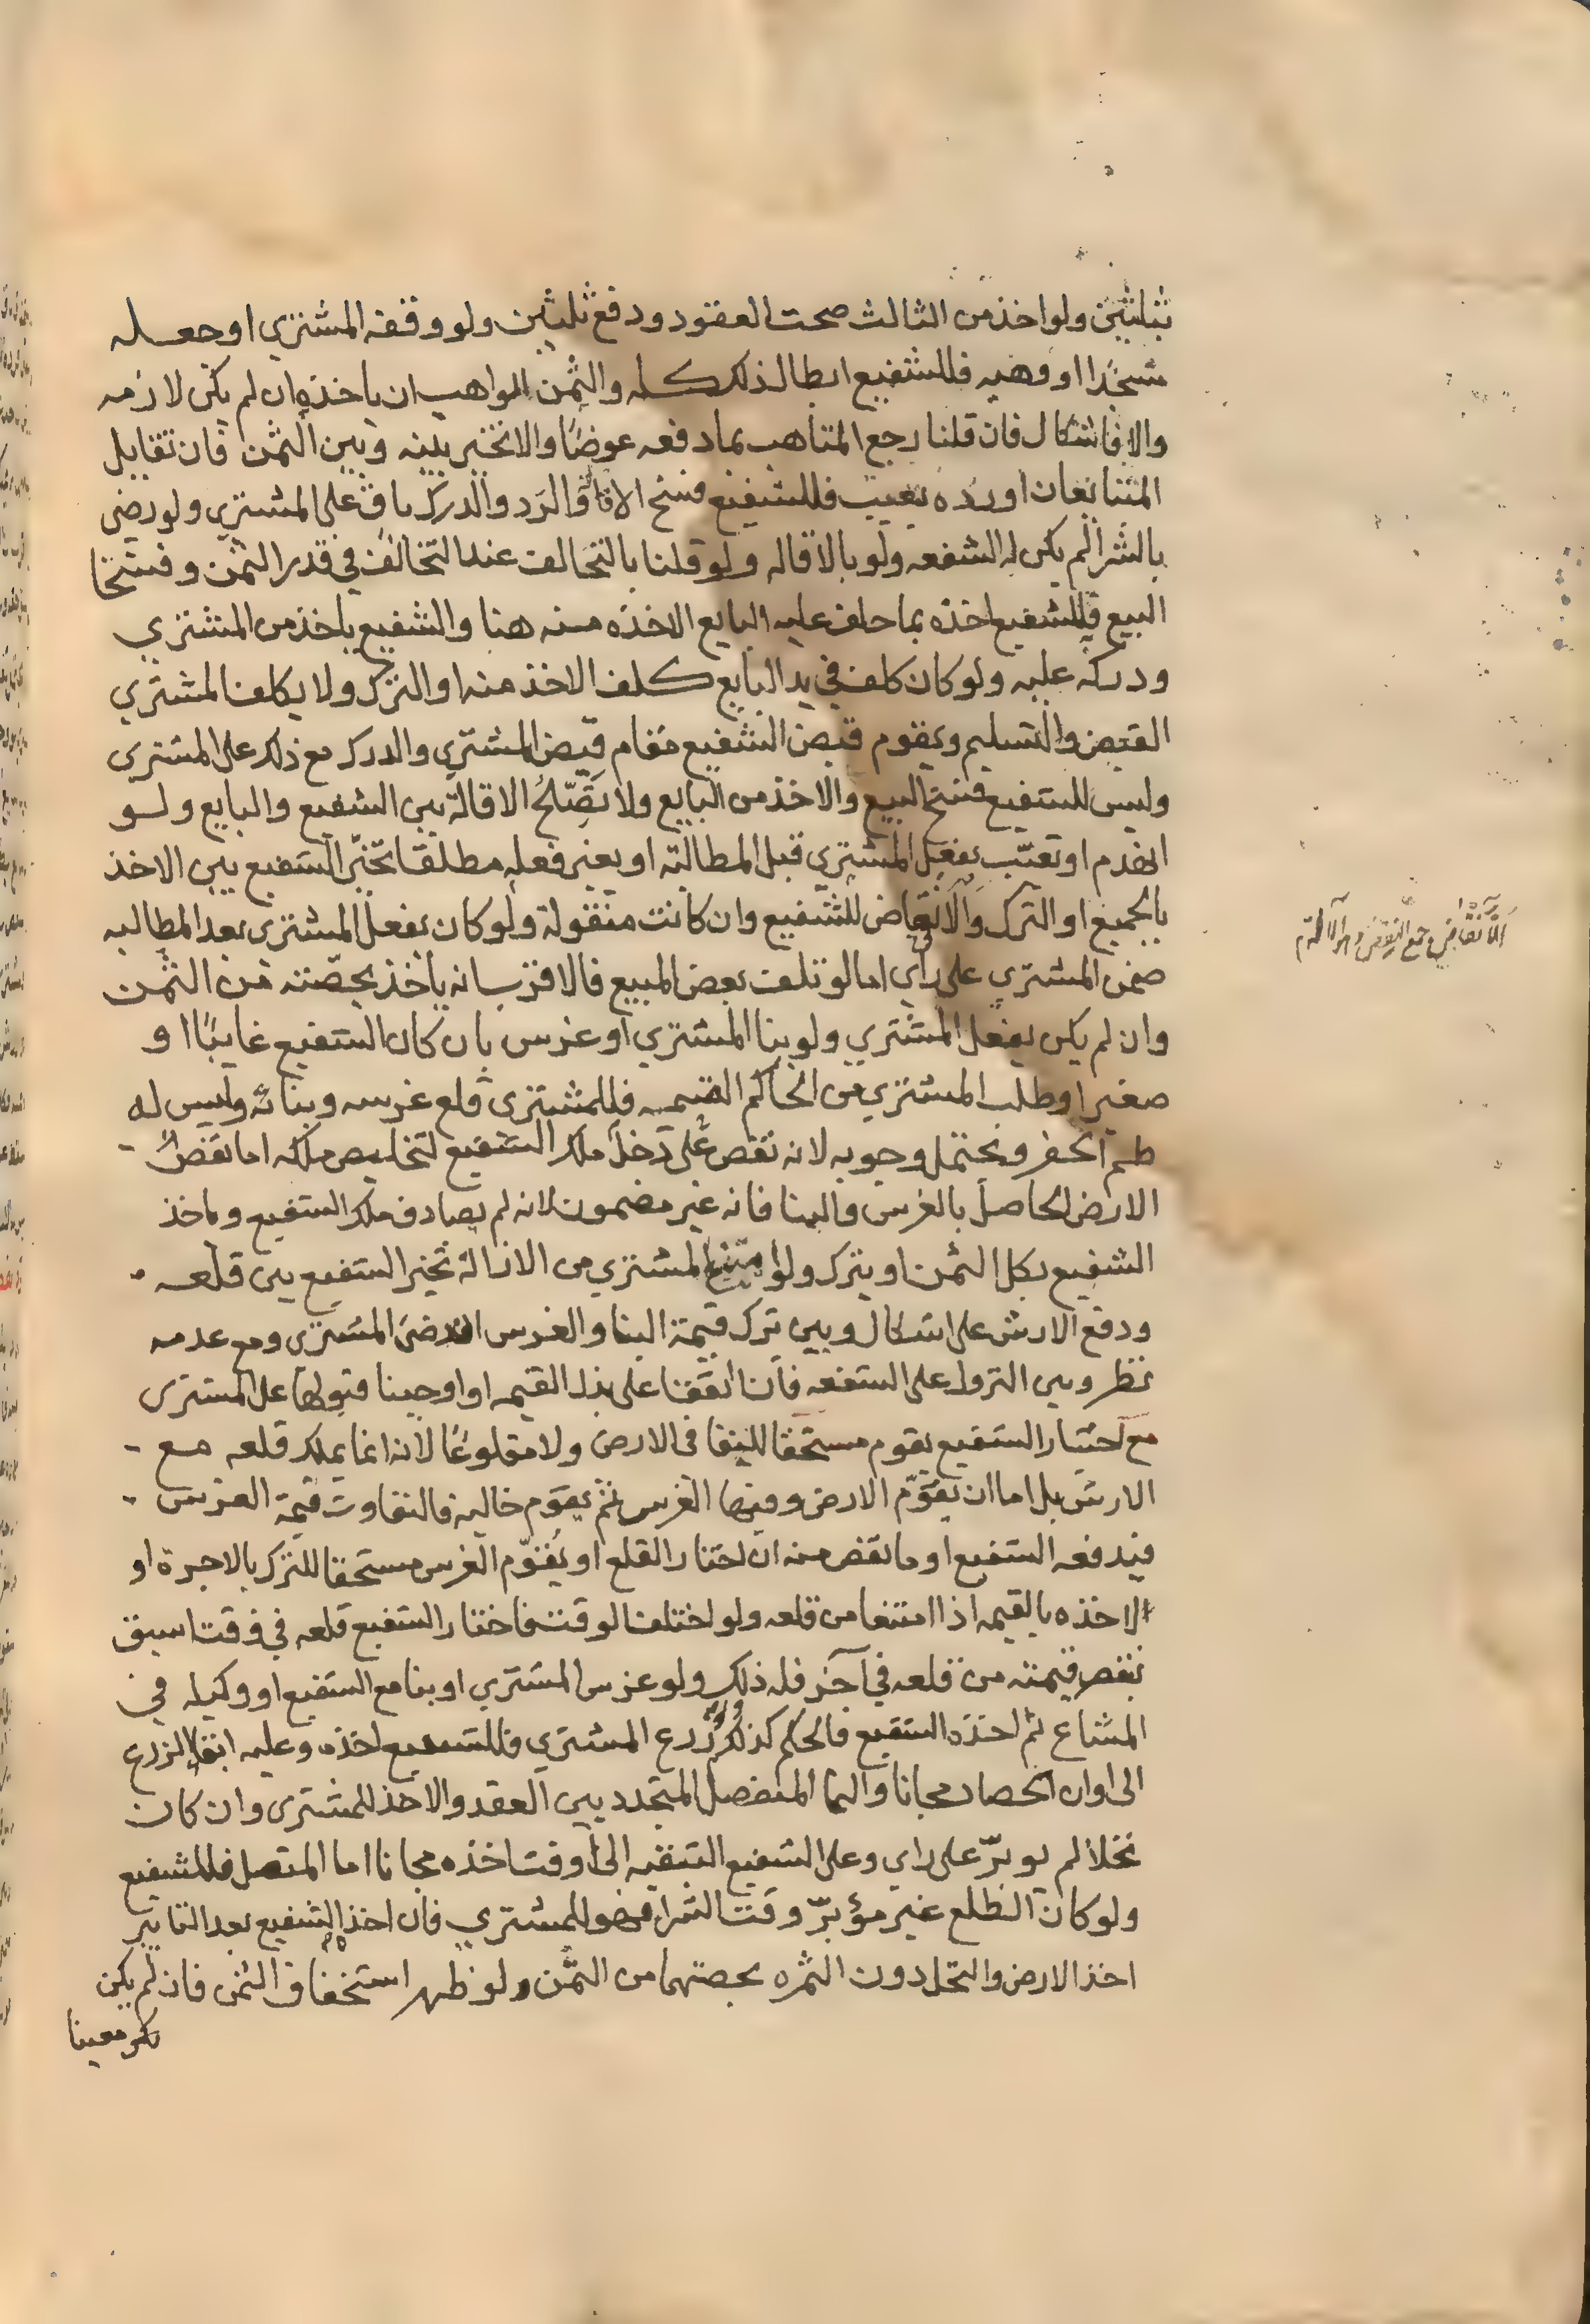 بثلثين ولو اخذ من الثالث صحت العقود ودفع ثلثين ولو وقفه المشتري او جعله
مسجدا او وهبه فللشفيع ابطال ذلك كله والثمن للواهب ان ياخذه ان لم يكن لازمه
والا فاشكال فان قلنا رجع المتاهب بما دفعه عوضًا والا تخير بينه وبين الثمن فان تقايل
المتبايعان او رده بعيب فللشفيع فسخ الاقالة والرد والدرك باق على المشتري ولو رضي
بالشرا لم يكن له الشفعه ولو بالاقاله ولو قلنا بالتحالف عند التخالف في قدر الثمن وفسخنا
البيع فللشفيع اخذه بما حلف عليه البايع لاخذه منه هنا والشفيع ياخذ من المشتري
ودركه عليه ولو كان في يد البايع كلف الاخذ منه او الترك ولا يكلف المشتري
القبض والتسليم ويقوم قبض الشفيع مقام قبض المشتري والدرك مع ذلك على المشتري
وليس للشفيع فسخ البيع والاخذ من البايع ولا تصّلحُ الاقالة بين الشفيع والبايع ولو
انهدم او تعيّب بفعل المشتري قبل المطالبة او بغير فعله مطلقا تخيّر الشفيع بين الاخذ
بالجميع او الترك والانقاض للشفيع وان كانت منقولة ولو كان بفعل المشتري بعد المطالبه
ضمن المشتري على راي اما لو تلف بعض المبيع فالاقرب انه ياخذ بحصّته من الثمن
وان لم يكن بفعل المشتري ولو بنا المشتري او غرس بان كان الشفيع غايبًا او
صغيرا وطلب المشتري من الحاكم القسمه فللمشتري قلع غرسه وبنائه وليس له
طم الحفر ويحتمل وجوبه لانه نقص دخل ملك الشفيع لتخليص ملكه اما نقصُ
الارض الحاصل بالغرس والبنا فانه غير مضمون لانه لم يصادف ملك الشفيع وياخذ
الشفيع بكل الثمن او يترك ولو امتنع المشتري من الازالة تخير الشفيع بين قلعه
ودفع الارش على اشكال وبين ترك قيمة البنا والغرس ان رضى المشتري ومع عدمه
نظر وبين النزول على الشفعه فان اتفقا على بذل القيمه او اوجبنا قبولها على المشتري
مع اختيار الشفيع يقوم مستحقا للبقا في الارض ولا مقلوعًا لانه انما يملك قلعه مع
الارش بل اما ان يقوّم الارض وفيها الغرس ثم يقوّم خالية فالتفاوت قيمة الغرس
فيدفعه الشفيع او ما نقص منه ان اختار القلع او يُقوّم الغرس مستحقا للترك بالاجرة او
لاخذه بالقيمه اذا امتنعا من قلعه ولو اختلف الوقت فاختار الشفيع قلعه في وقت اسبق
تنقص قيمته من قلعه في آخر فله ذلك ولو غرس المشتري او بنا مع الشفيع او وكيله في
المشاع ثم اخذه الشفيع فالحكم كذلك ولو زرع المشتري فللشفيع اخذه وعليه ابقا الزرع
الى اوان الحصاد مجانا والنما المنفصل المتجدد بين العقد والاخذ للمشتري وان كان
نخلا لم يوبّر على راي وعلى الشفيع التبقيه الى وقت اخذه مجانا اما المتصل فللشفيع
ولو كان الطلع غير مؤبرّ وقت الشرا فهو للمشتري فان اخذه الشفيع بعد التابير
اخذ الارض والنخل دون الثمره بحصتهما من الثمن ولو ظهر استحقاق الثمن فان لم يكن
معينا
الانقاض جمع النقض وهو الآلة